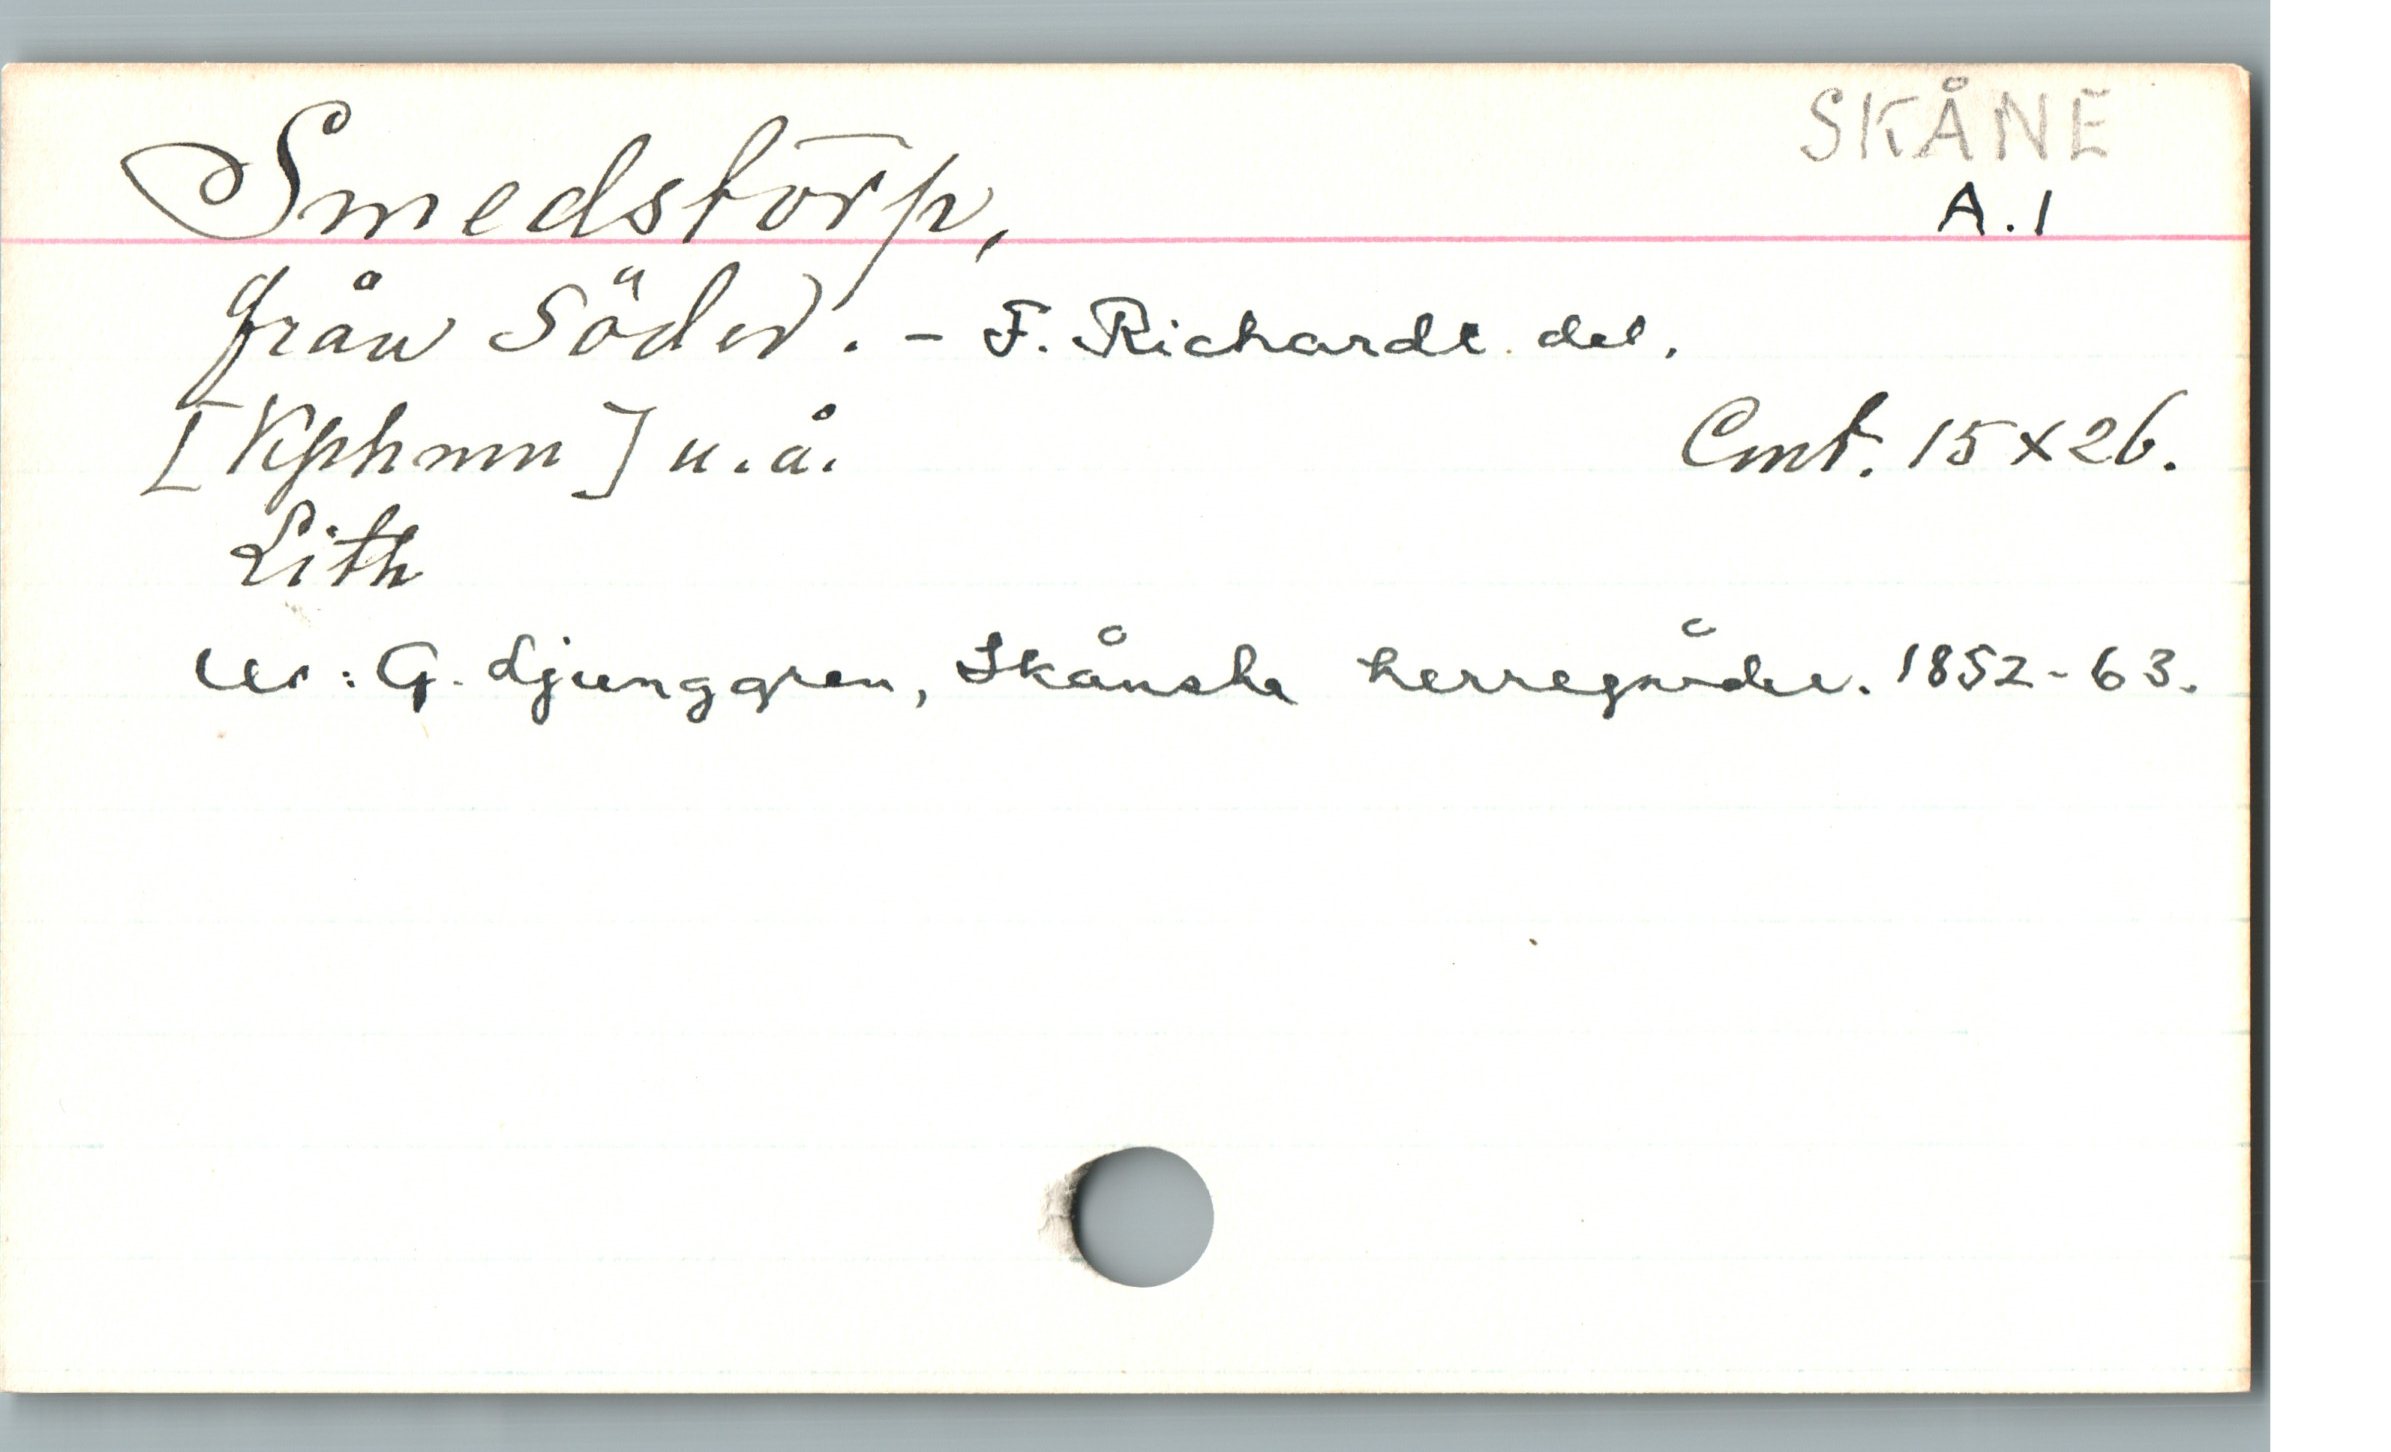 SKÅNE
Smedstorp,
A.1
från Söder. - F. Richardt del.
[Kphmn] u.å. Cmt. 15x26.
Lith
Ur: G. Ljunggren, Skånska herregårdar. 1852-63.